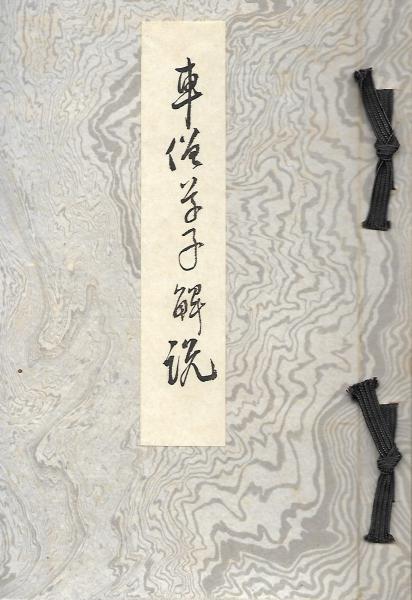 車僧草子解説